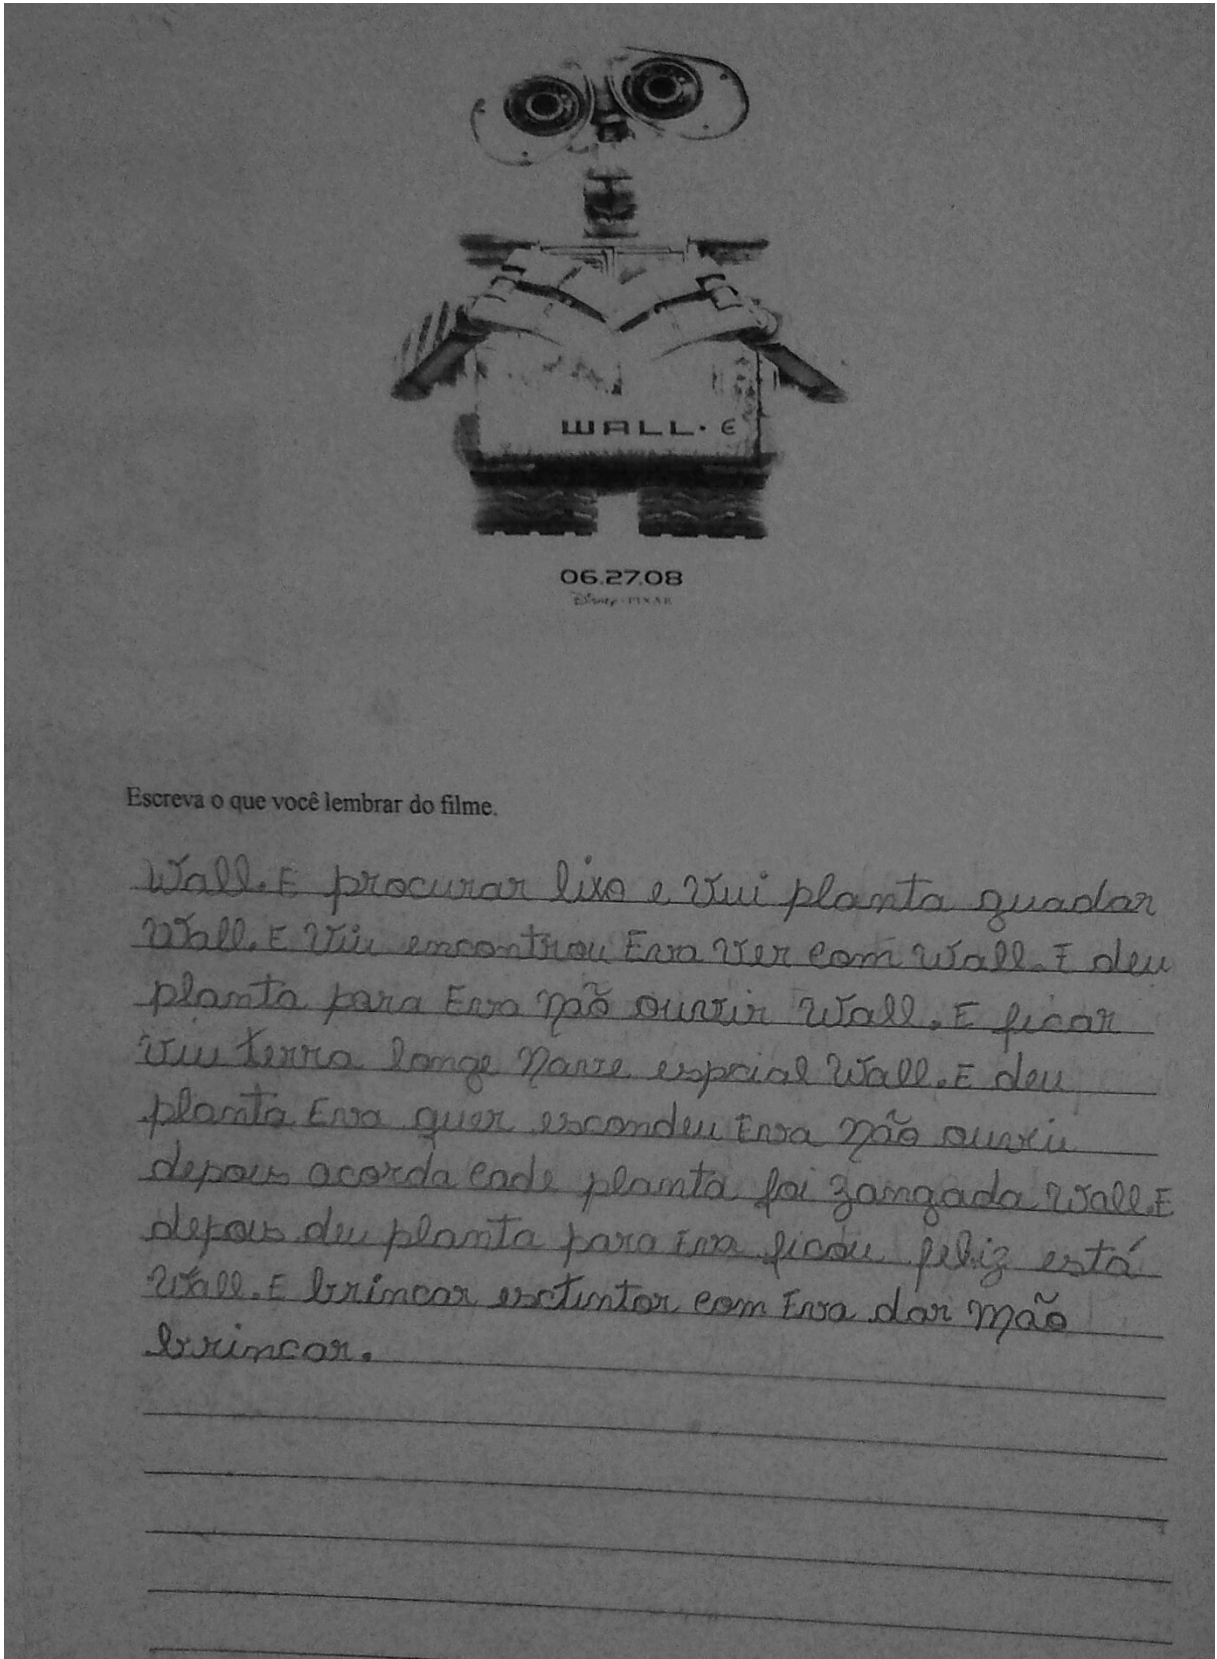 WALL·E
06.27.08
Disney·PIXAR
Escreva o que você lembrar do filme.
Wall.E procurar lixo e Vui planta guadar
Wall.E Viu encontrou Eva Ver com Wall.E deu
planta para Eva não ouvir Wall.E ficar
viu terra longe Nave espcial Wall.E deu
planta Eva quer escondeu Eva não ouviu
depois acorda cade planta foi zangada Wall.E
depois deu planta para Eva ficou feliz está
Wall.E brincar esctintor com Eva dar mão
brincar.